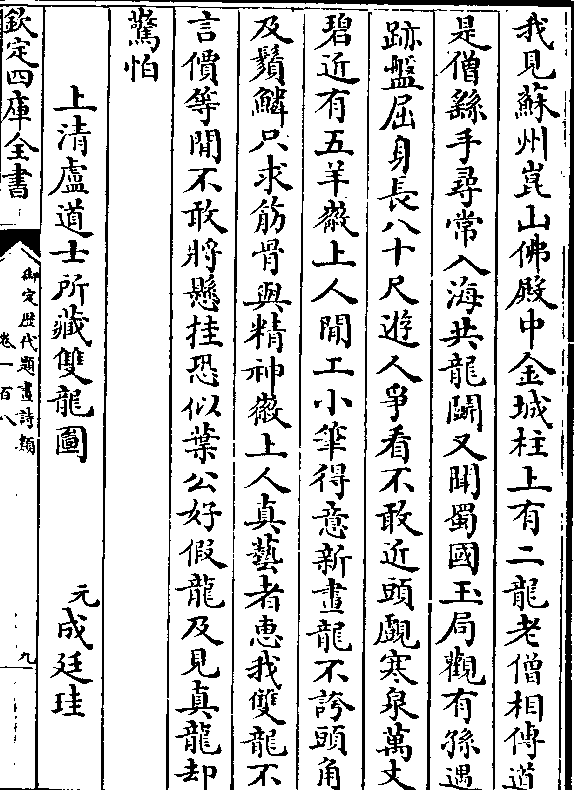 我見蘇州崑山佛殿中金城柱上有二龍老僧相傳道
是僧繇手尋常入海共龍鬭又聞蜀國玉局觀有孫遇
跡盤屈身長八十尺遊人爭看不敢近頭覷寒泉萬丈
碧近有五羊徽上人閒工小筆得意新畫龍不誇頭角
及鬚鱗只求筋骨與精神徽上人真藝者惠我雙龍不
言價等閒不敢將懸挂恐似葉公好假龍及見真龍却
驚怕
上清盧道士所藏雙龍圖　元成廷珪
欽定四庫全書
御定歴代題畫詩類
卷一百八
九